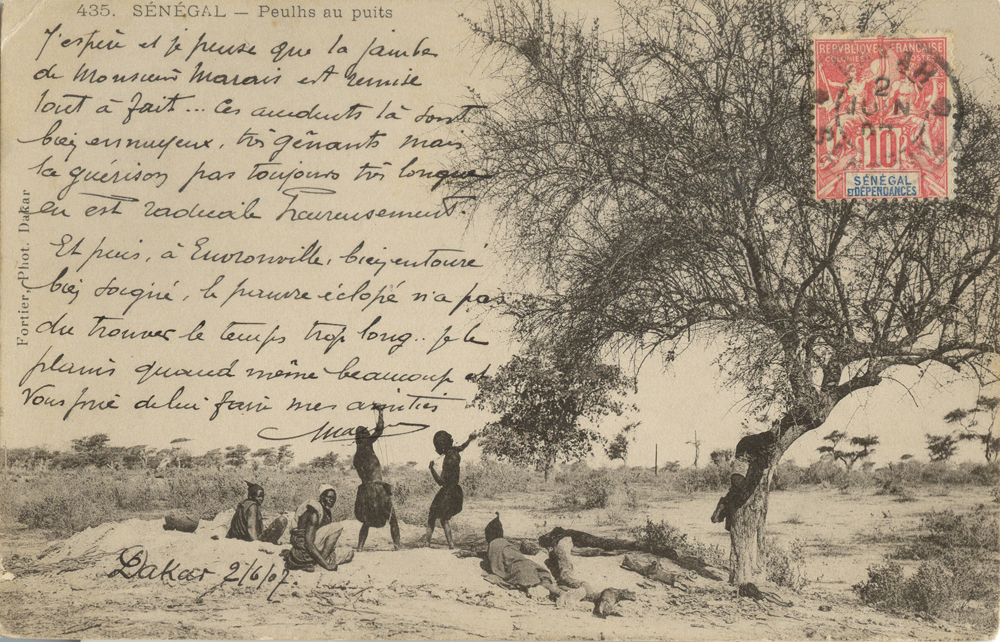 435. SÉNÉGAL — Peulhs au puits
J'espère et je pense que la jambe
de Monsieur Marais est remise
tout à fait... Ces accidents là sont
bien ennuyeux, très gênants mais
la guérison pas toujours très longue
en est radicale heureusement.
Et puis, à Envronville, bien entouré
bien soigné, le pauvre éclopé n'a pas
du trouver le temps trop long.. je le
plains quand même beaucoup et
Vous prie de lui faire mes amitiés
Dakar 2/6/07.
Fortier, Phot. Dakar
REPUBLIQUE FRANÇAISE
COLONIES POSTES
2
JUIN
10
SÉNÉGAL
ET DÉPENDANCES